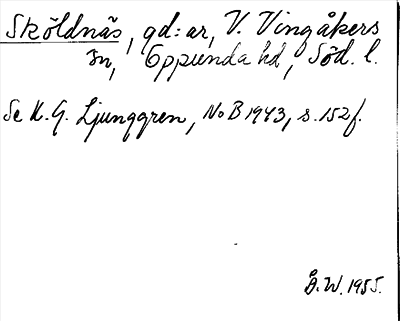 Sköldnäs, gd:ar, V. Vingåkers
sn, Oppunda hd, Söd. l.
Se K.G. Ljunggren, NoB 1943, s. 152 f.
B.W. 1955.